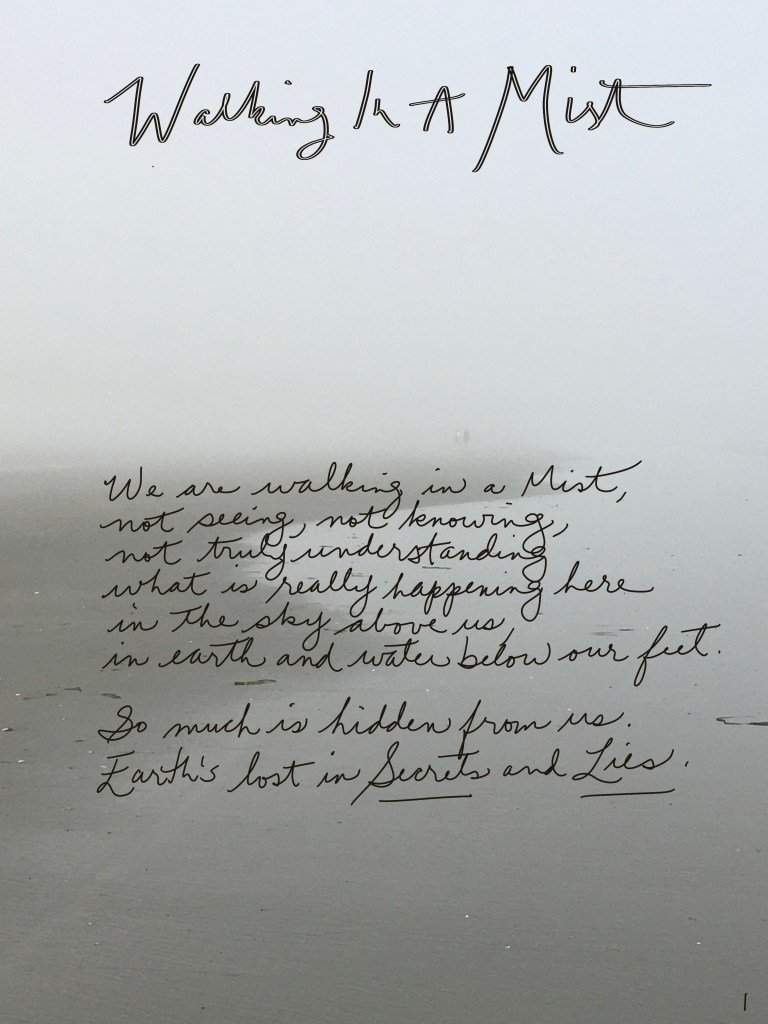 Walking In A Mist
We are walking in a Mist,
not seeing, not knowing,
not truly understanding
what is really happening here
in the sky above us,
in earth and water below our feet.
So much is hidden from us.
Earth's lost in Secrets and Lies.
1